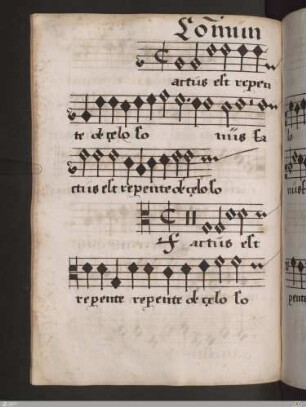 Com̃um
actus est repen
te de çelo so nus fa
ctus est repente de çelo so
F actus est
repente repente de çelo so